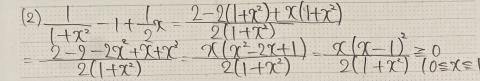 (2) \frac{1}{1+x^2} - 1 + \frac{1}{2}x = \frac{2-2(1+x^2)+x(1+x^2)}{2(1+x^2)}
= \frac{2-2-2x^2+x+x^3}{2(1+x^2)} = \frac{x(x^2-2x+1)}{2(1+x^2)} = \frac{x(x-1)^2}{2(1+x^2)} ≧ 0 (0≦x≦1